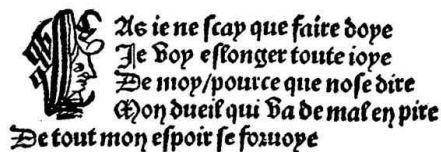 LAs ie ne scay que faire doye
Je Voy eslonger toute ioye
De moy/pource que nose dire
Mon dueil qui Va de mal en pire
De tout mon espoir se foruoye